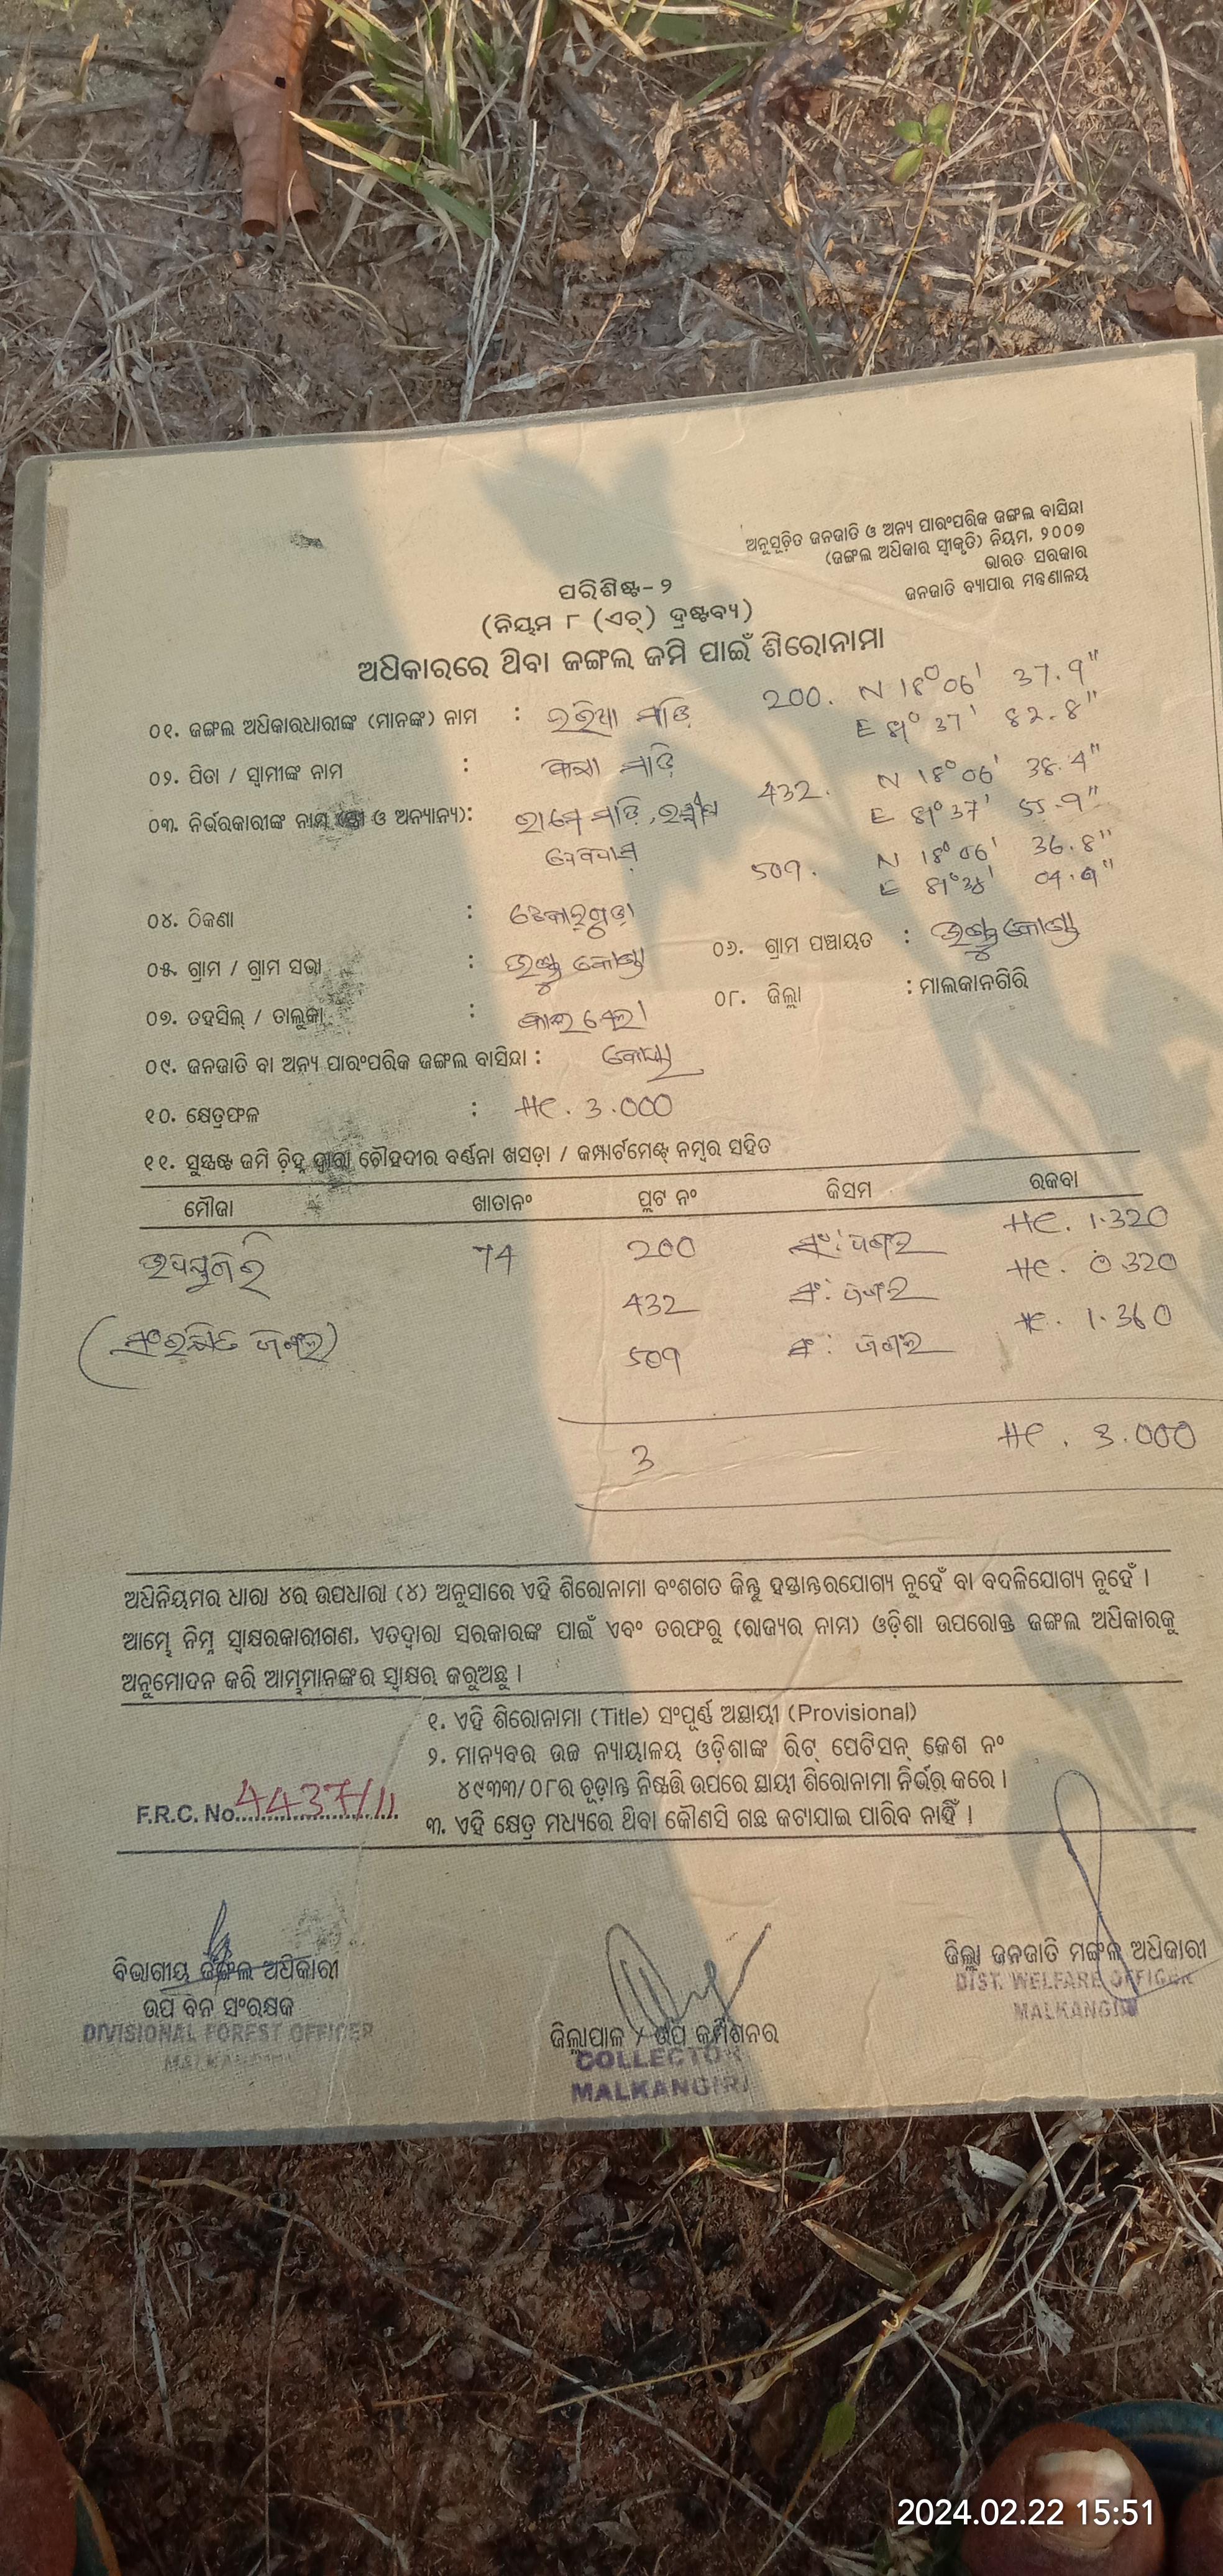 ଅନୁସୂଚିତ ଜନଜାତି ଓ ଅନ୍ୟ ପାରଂପରିକ ଜଙ୍ଗଲ ବାସିନ୍ଦା
(ଜଙ୍ଗଲ ଅଧିକାର ସ୍ୱୀକୃତି) ନିୟମ, ୨୦୦୭
ଭାରତ ସରକାର
ଜନଜାତି ବ୍ୟାପାର ମନ୍ତ୍ରଣାଳୟ
ପରିଶିଷ୍ଟ-୨
(ନିୟମ ୮ (ଏଚ୍) ଦ୍ରଷ୍ଟବ୍ୟ)
ଅଧିକାରରେ ଥିବା ଜଙ୍ଗଲ ଜମି ପାଇଁ ଶିରୋନାମା
୦୧. ଜଙ୍ଗଲ ଅଧିକାରଧାରୀଙ୍କ (ମାନଙ୍କ) ନାମ : ମାଡ଼ି 200. N 18°06' 37.9"
E 81° 37' 82.8"
୦୨. ପିତା / ସ୍ୱାମୀଙ୍କ ନାମ : ମାଡ଼ି
432. N 18°06' 38.4"
୦୩. ନିର୍ଭରକାରୀଙ୍କ ନାମ (ସ୍ତ୍ରୀ ଓ ଅନ୍ୟାନ୍ୟ): ମାଡ଼ି, E 81°37' 55.9"
509. N 18°06' 36.8"
E 81°38' 04.9"
୦୪. ଠିକଣା :
୦୫. ଗ୍ରାମ / ଗ୍ରାମ ସଭା : ୦୬. ଗ୍ରାମ ପଞ୍ଚାୟତ :
୦୭. ତହସିଲ୍ / ତାଲୁକା : ୦୮. ଜିଲ୍ଲା : ମାଲକାନଗିରି
୦୯. ଜନଜାତି ବା ଅନ୍ୟ ପାରଂପରିକ ଜଙ୍ଗଲ ବାସିନ୍ଦା : କୋୟା
୧୦. କ୍ଷେତ୍ରଫଳ : HC. 3.000
୧୧. ସୁସ୍ପଷ୍ଟ ଜମି ଚିହ୍ନ ଦ୍ୱାରା ଚୌହଦୀର ବର୍ଣ୍ଣନା ଖସଡ଼ା / କମ୍ପାର୍ଟମେଣ୍ଟ୍ ନମ୍ବର ସହିତ
ମୌଜା ଖାତାନଂ ପ୍ଲଟ ନଂ କିସମ ରକବା
ଉଦୟଗିରି 74 200 ସଂ: ଜଙ୍ଗଲ HC. 1.320
432 ସଂ: ଜଙ୍ଗଲ HC. 0.320
(ସଂରକ୍ଷିତ ଜଙ୍ଗଲ) 509 ସଂ: ଜଙ୍ଗଲ HC. 1.360
3 HC. 3.000
ଅଧିନିୟମର ଧାରା ୪ର ଉପଧାରା (୪) ଅନୁସାରେ ଏହି ଶିରୋନାମା ବଂଶଗତ କିନ୍ତୁ ହସ୍ତାନ୍ତରଯୋଗ୍ୟ ନୁହେଁ ବା ବଦଳିଯୋଗ୍ୟ ନୁହେଁ ।
ଆମ୍ଭେ ନିମ୍ନ ସ୍ୱାକ୍ଷରକାରୀଗଣ, ଏତଦ୍ୱାରା ସରକାରଙ୍କ ପାଇଁ ଏବଂ ତରଫରୁ (ରାଜ୍ୟର ନାମ) ଓଡ଼ିଶା ଉପରୋକ୍ତ ଜଙ୍ଗଲ ଅଧିକାରକୁ
ଅନୁମୋଦନ କରି ଆମ୍ଭମାନଙ୍କର ସ୍ୱାକ୍ଷର କରୁଅଛୁ ।
୧. ଏହି ଶିରୋନାମା (Title) ସଂପୂର୍ଣ୍ଣ ଅସ୍ଥାୟୀ (Provisional)
୨. ମାନ୍ୟବର ଉଚ୍ଚ ନ୍ୟାୟାଳୟ ଓଡ଼ିଶାଙ୍କ ରିଟ୍ ପେଟିସନ୍ କେଶ ନଂ
୪୯୩୩/୦୮ର ଚୂଡ଼ାନ୍ତ ନିଷ୍ପତ୍ତି ଉପରେ ସ୍ଥାୟୀ ଶିରୋନାମା ନିର୍ଭର କରେ ।
F.R.C. No. 4437/11
୩. ଏହି କ୍ଷେତ୍ର ମଧ୍ୟରେ ଥିବା କୌଣସି ଗଛ କଟାଯାଇ ପାରିବ ନାହିଁ ।
ବିଭାଗୀୟ ଜଙ୍ଗଲ ଅଧିକାରୀ
ଉପ ବନ ସଂରକ୍ଷକ
DIVISIONAL FOREST OFFICER
MALKANGIRI
ଜିଲ୍ଲାପାଳ / ଉପ କମିଶନର
COLLECTOR
MALKANGIRI
ଜିଲ୍ଲା ଜନଜାତି ମଙ୍ଗଳ ଅଧିକାରୀ
DIST. WELFARE OFFICER
MALKANGIRI
2024.02.22 15:51